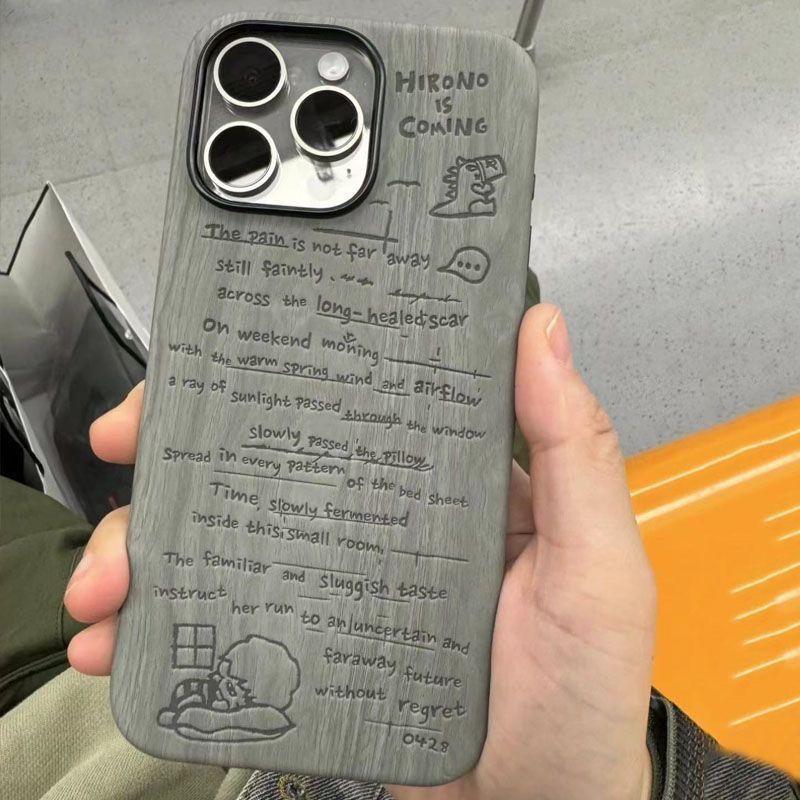 HIRONO
IS
COMING
The pain is not far away
still faintly
across the long-healed scar
On weekend moning
with the warm spring wind and airflow
a ray of sunlight passed through the window
slowly passed the pillow
Spread in every pattern of the bed sheet
Time, slowly fermented
inside this small room,
The familiar and sluggish taste
instruct her run to an uncertain and
faraway future
without regret
0428